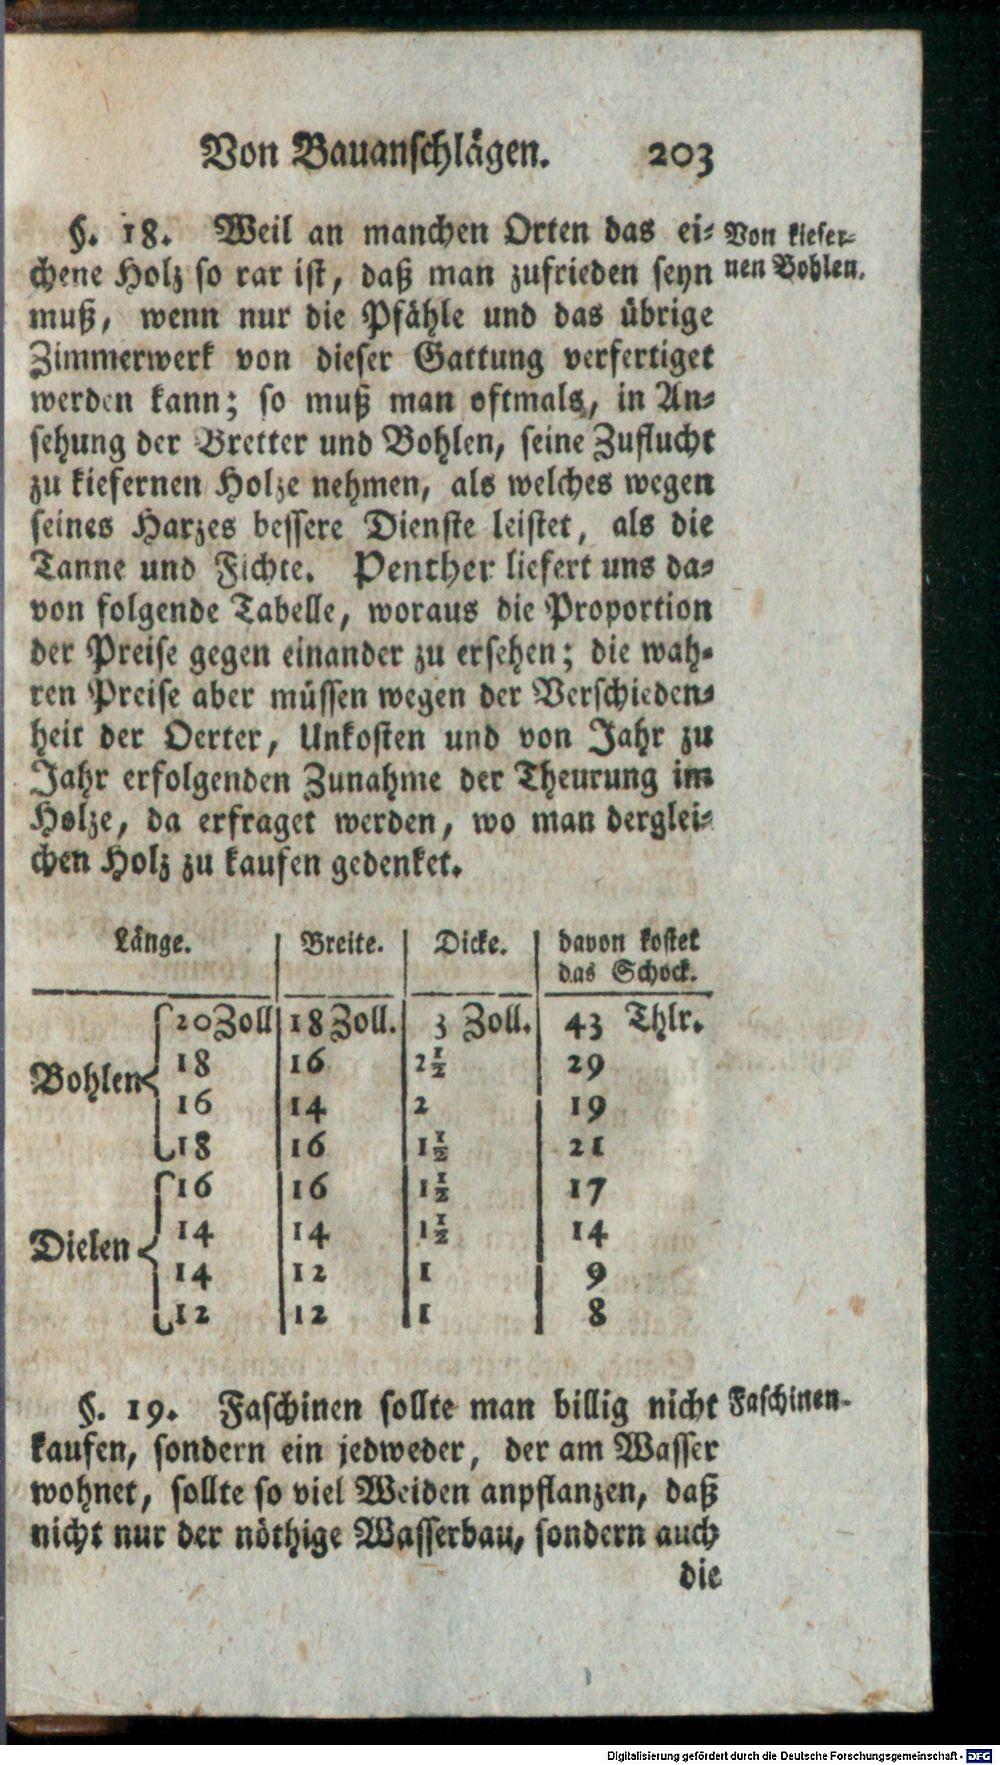 Von Bauanschlägen. 203
§. 18. Weil an manchen Orten das ei-
chene Holz so rar ist, daß man zufrieden seyn
muß, wenn nur die Pfähle und das übrige
Zimmerwerk von dieser Gattung verfertiget
werden kann; so muß man oftmals, in An-
sehung der Bretter und Bohlen, seine Zuflucht
zu kiefernen Holze nehmen, als welches wegen
seines Harzes bessere Dienste leistet, als die
Tanne und Fichte. Penther liefert uns da-
von folgende Tabelle, woraus die Proportion
der Preise gegen einander zu ersehen; die wah-
ren Preise aber müssen wegen der Verschieden-
heit der Oerter, Unkosten und von Jahr zu
Jahr erfolgenden Zunahme der Theurung im
Holze, da erfraget werden, wo man derglei-
chen Holz zu kaufen gedenket.
Von kiefer-
nen Bohlen.
Länge. Breite. Dicke. davon kostet
das Schock.
20 Zoll 18 Zoll. 3 Zoll. 43 Thlr.
18 16 2½ 29
Bohlen
16 14 2 19
18 16 1½ 21
16 16 1½ 17
14 14 1½ 14
Dielen
14 12 1 9
12 12 1 8
§. 19. Faschinen sollte man billig nicht
kaufen, sondern ein jedweder, der am Wasser
wohnet, sollte so viel Weiden anpflanzen, daß
nicht nur der nöthige Wasserbau, sondern auch
die
Faschinen.
Digitalisierung gefördert durch die Deutsche Forschungsgemeinschaft - DFG